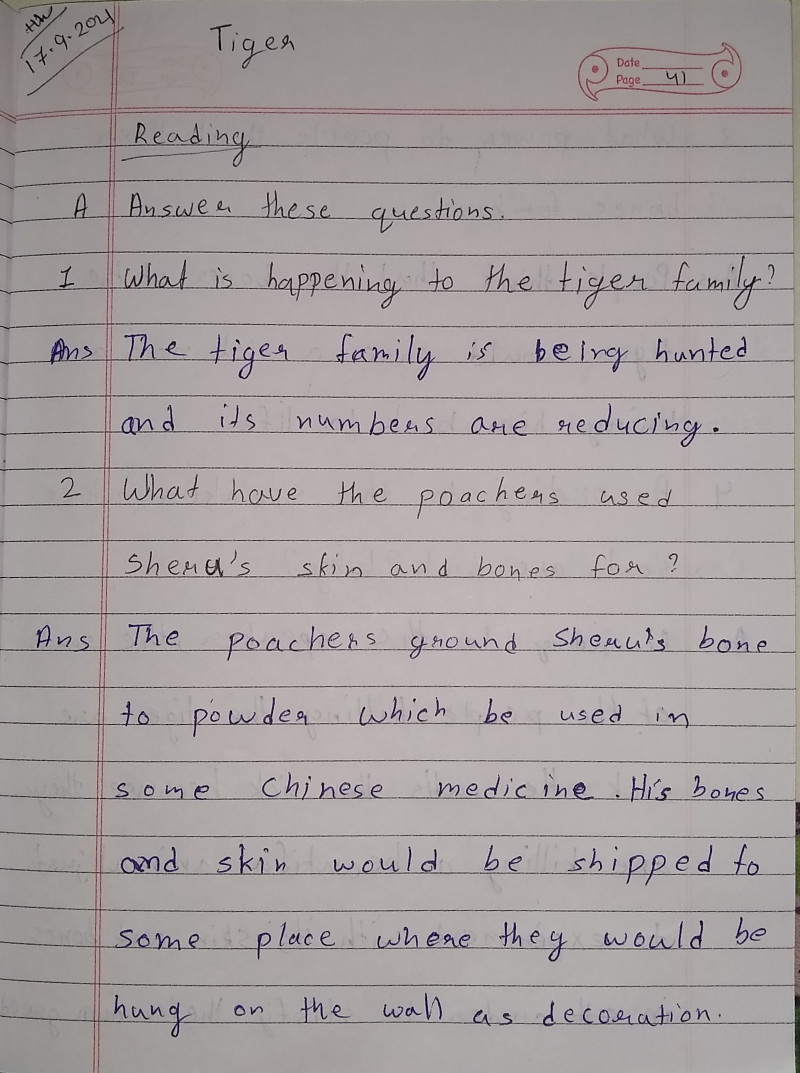 HW
17.9.2021
Tiger
Date
Page 41
Reading
A Answer these questions.
1 What is happening to the tiger family?
Ans The tiger family is being hunted
and its numbers are reducing.
2 What have the poachers used
Sheru's skin and bones for ?
Ans The poachers ground Sheru's bone
to powder which be used in
some Chinese medicine. His bones
and skin would be shipped to
some place where they would be
hung on the wall as decoration.